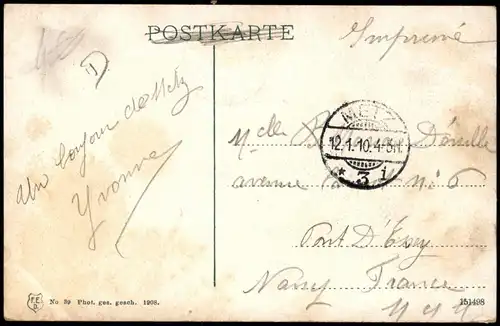 POSTKARTE
Imprimé
D
Un bonjour de Metz
Yvonne
METZ
12.1.10.4-5N.
* 3 i
Mlle B Déville
avenue No 6
Pont D'Essey
Nancy France
F.E.D.
No 39 Phot. ges. gesch. 1908.
151498